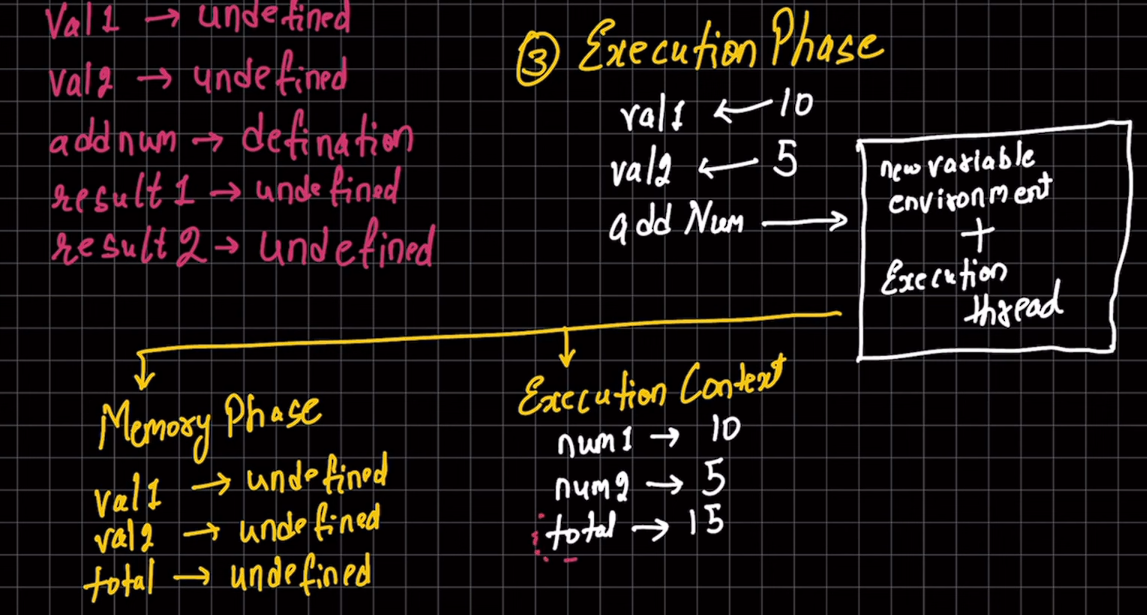 Val1 → undefined
val2 → undefined
addnum → defination
result1 → undefined
result2 → undefined
③ Execution Phase
val1 ← 10
val2 ← 5
add Num →
new variable
environment
+
Execution
thread
Memory Phase
val1 → undefined
val2 → undefined
total → undefined
Execution Context
num1 → 10
num2 → 5
total → 15